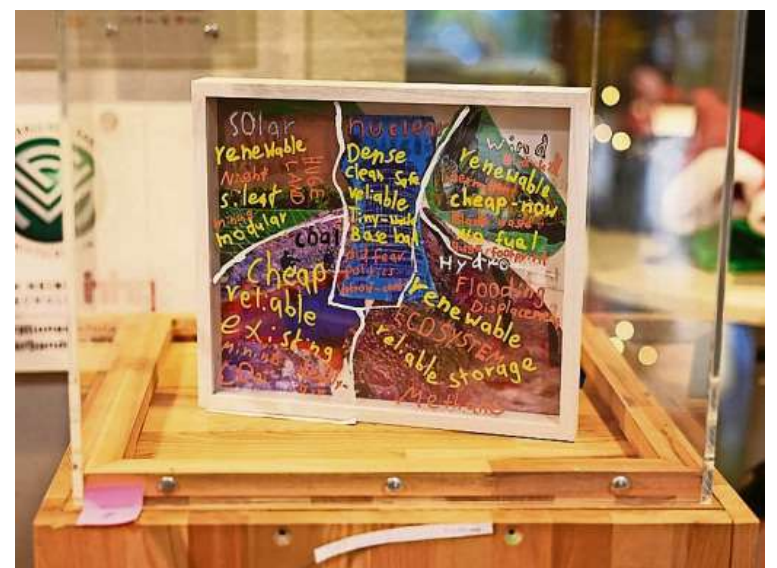 solar
renewable
Night
HUGE LAND
silent
mining
modular
nuclear
Dense
clean safe
reliable
Tiny-waste
Base load
old fear
politics
wind
renewable
cheap-now
Blade waste
No fuel
coal
cheap
reliable
existing
mining
Hydro
Flooding
Displacement
renewable
ECOSYSTEM
reliable storage
Methane